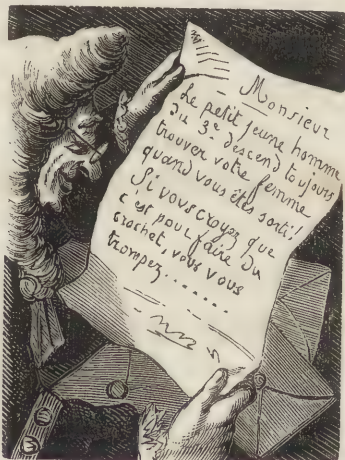 Monsieur
Le petit jeune homme
du 3e descend toujours
trouver votre femme
quand vous êtes sorti!
Si vous croyez que
c'est pour faire du
crochet, vous vous
trompez.......